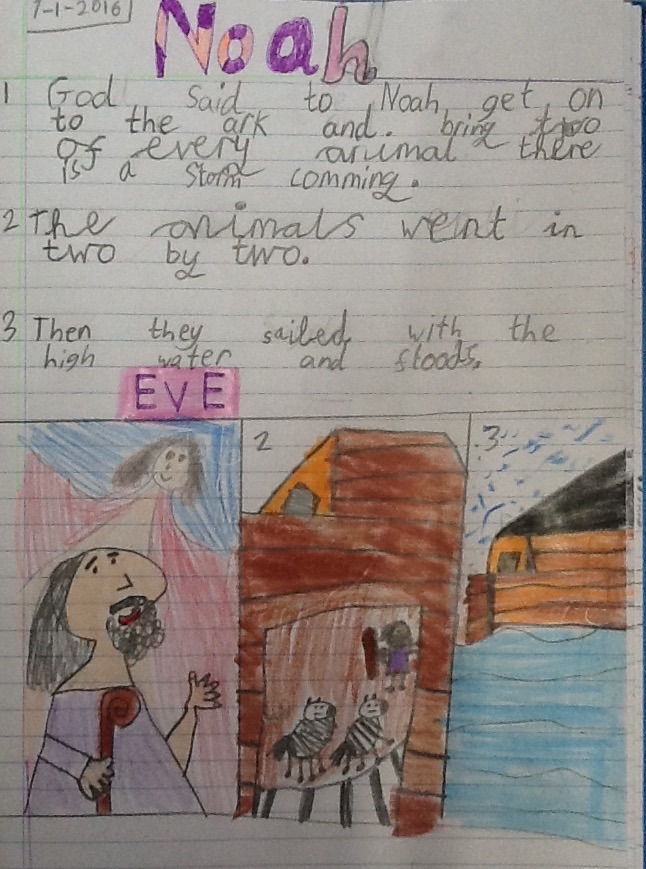 7-1-2016
Noah
1 God said to Noah, get on
to the ark and. bring two
of every animal there
is a storm comming.
2 The animals went in
two by two.
3 Then they sailed, with the
high water and floods.
EVE
2
3